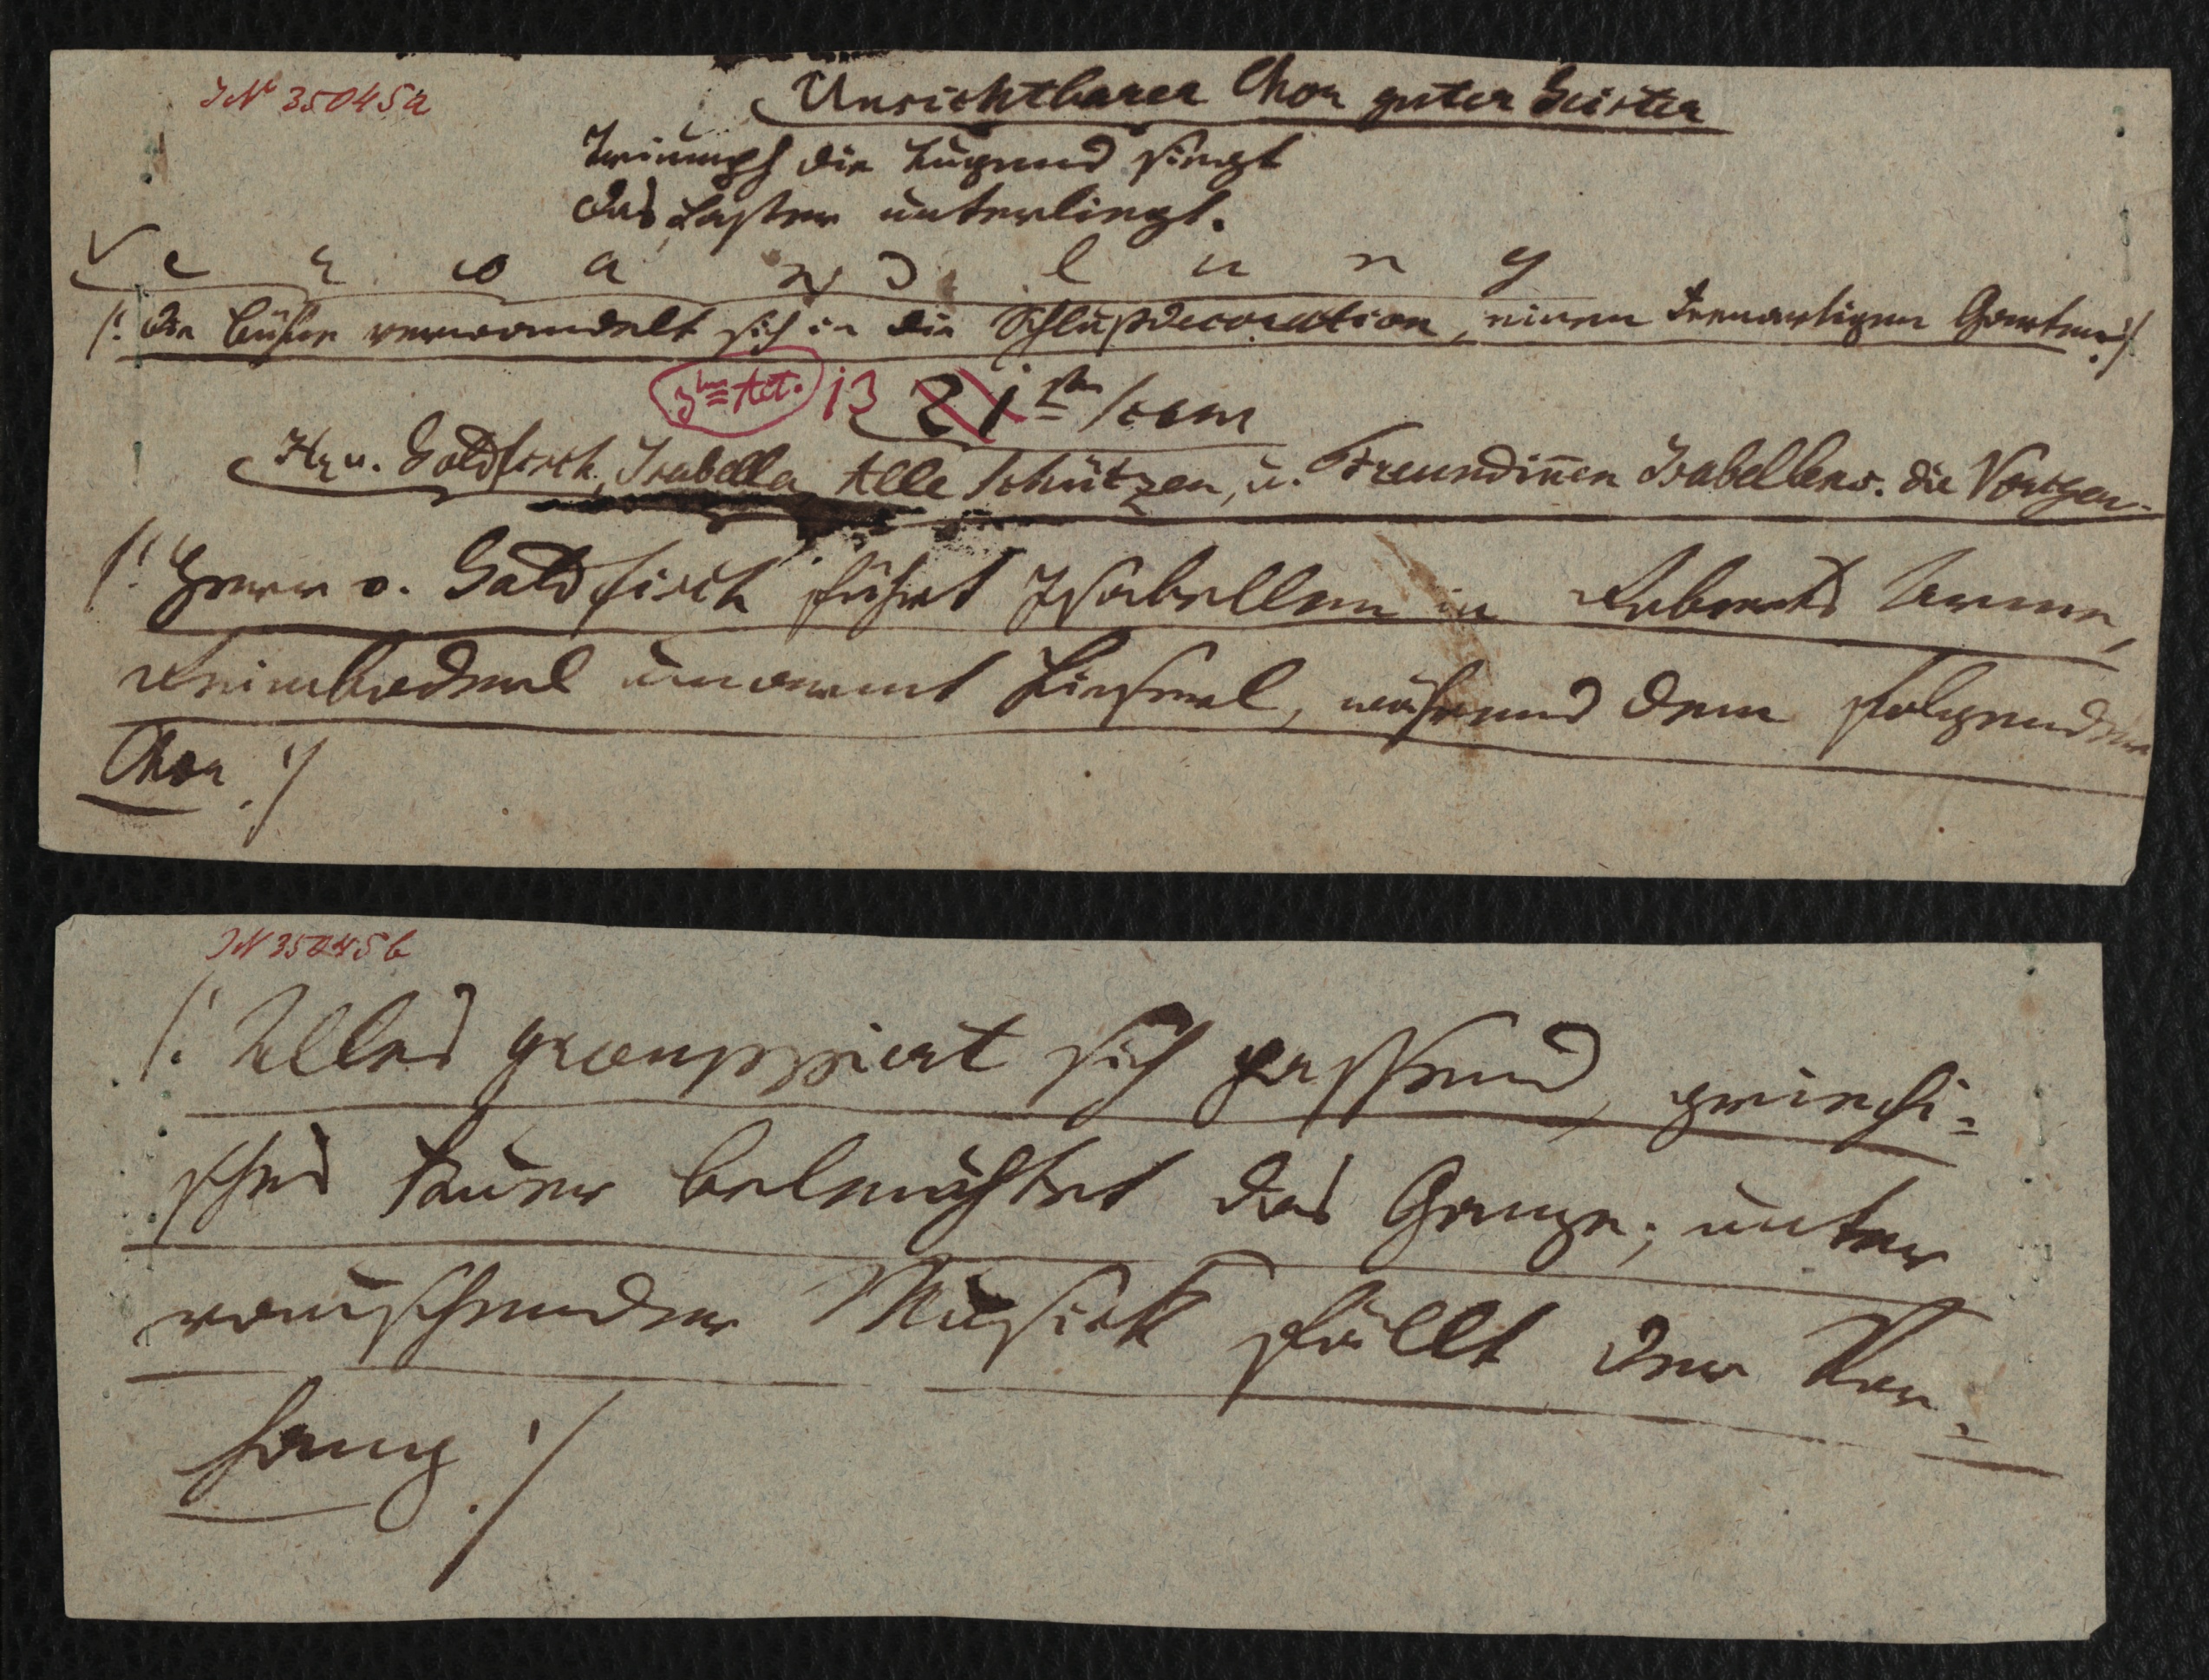 IN 35045a
Unsichtbarer Chor guter Geister
Triumph die Tugend siegt
das Laster unterliegt.
Verwandlung
/: die Bühne verwandelt sich in die Schlußdecoration, einen Garten :/
3ten Act. 13 21ste Scene
Hr v. Goldfisch, Isabella Alle Schützen, u. Freundinen Isabellens. die Vorigen.
/: Herr v. Goldfisch führt Isabellen in Roberts Arme,
umarmt Lieserl, während dem folgenden
Chor :/
IN 35045b
/: Alles grouppiert sich passend, griechi=
sches Feuer beleuchtet das Ganze; unter
rauschender Musick fällt der Vor=
hang :/